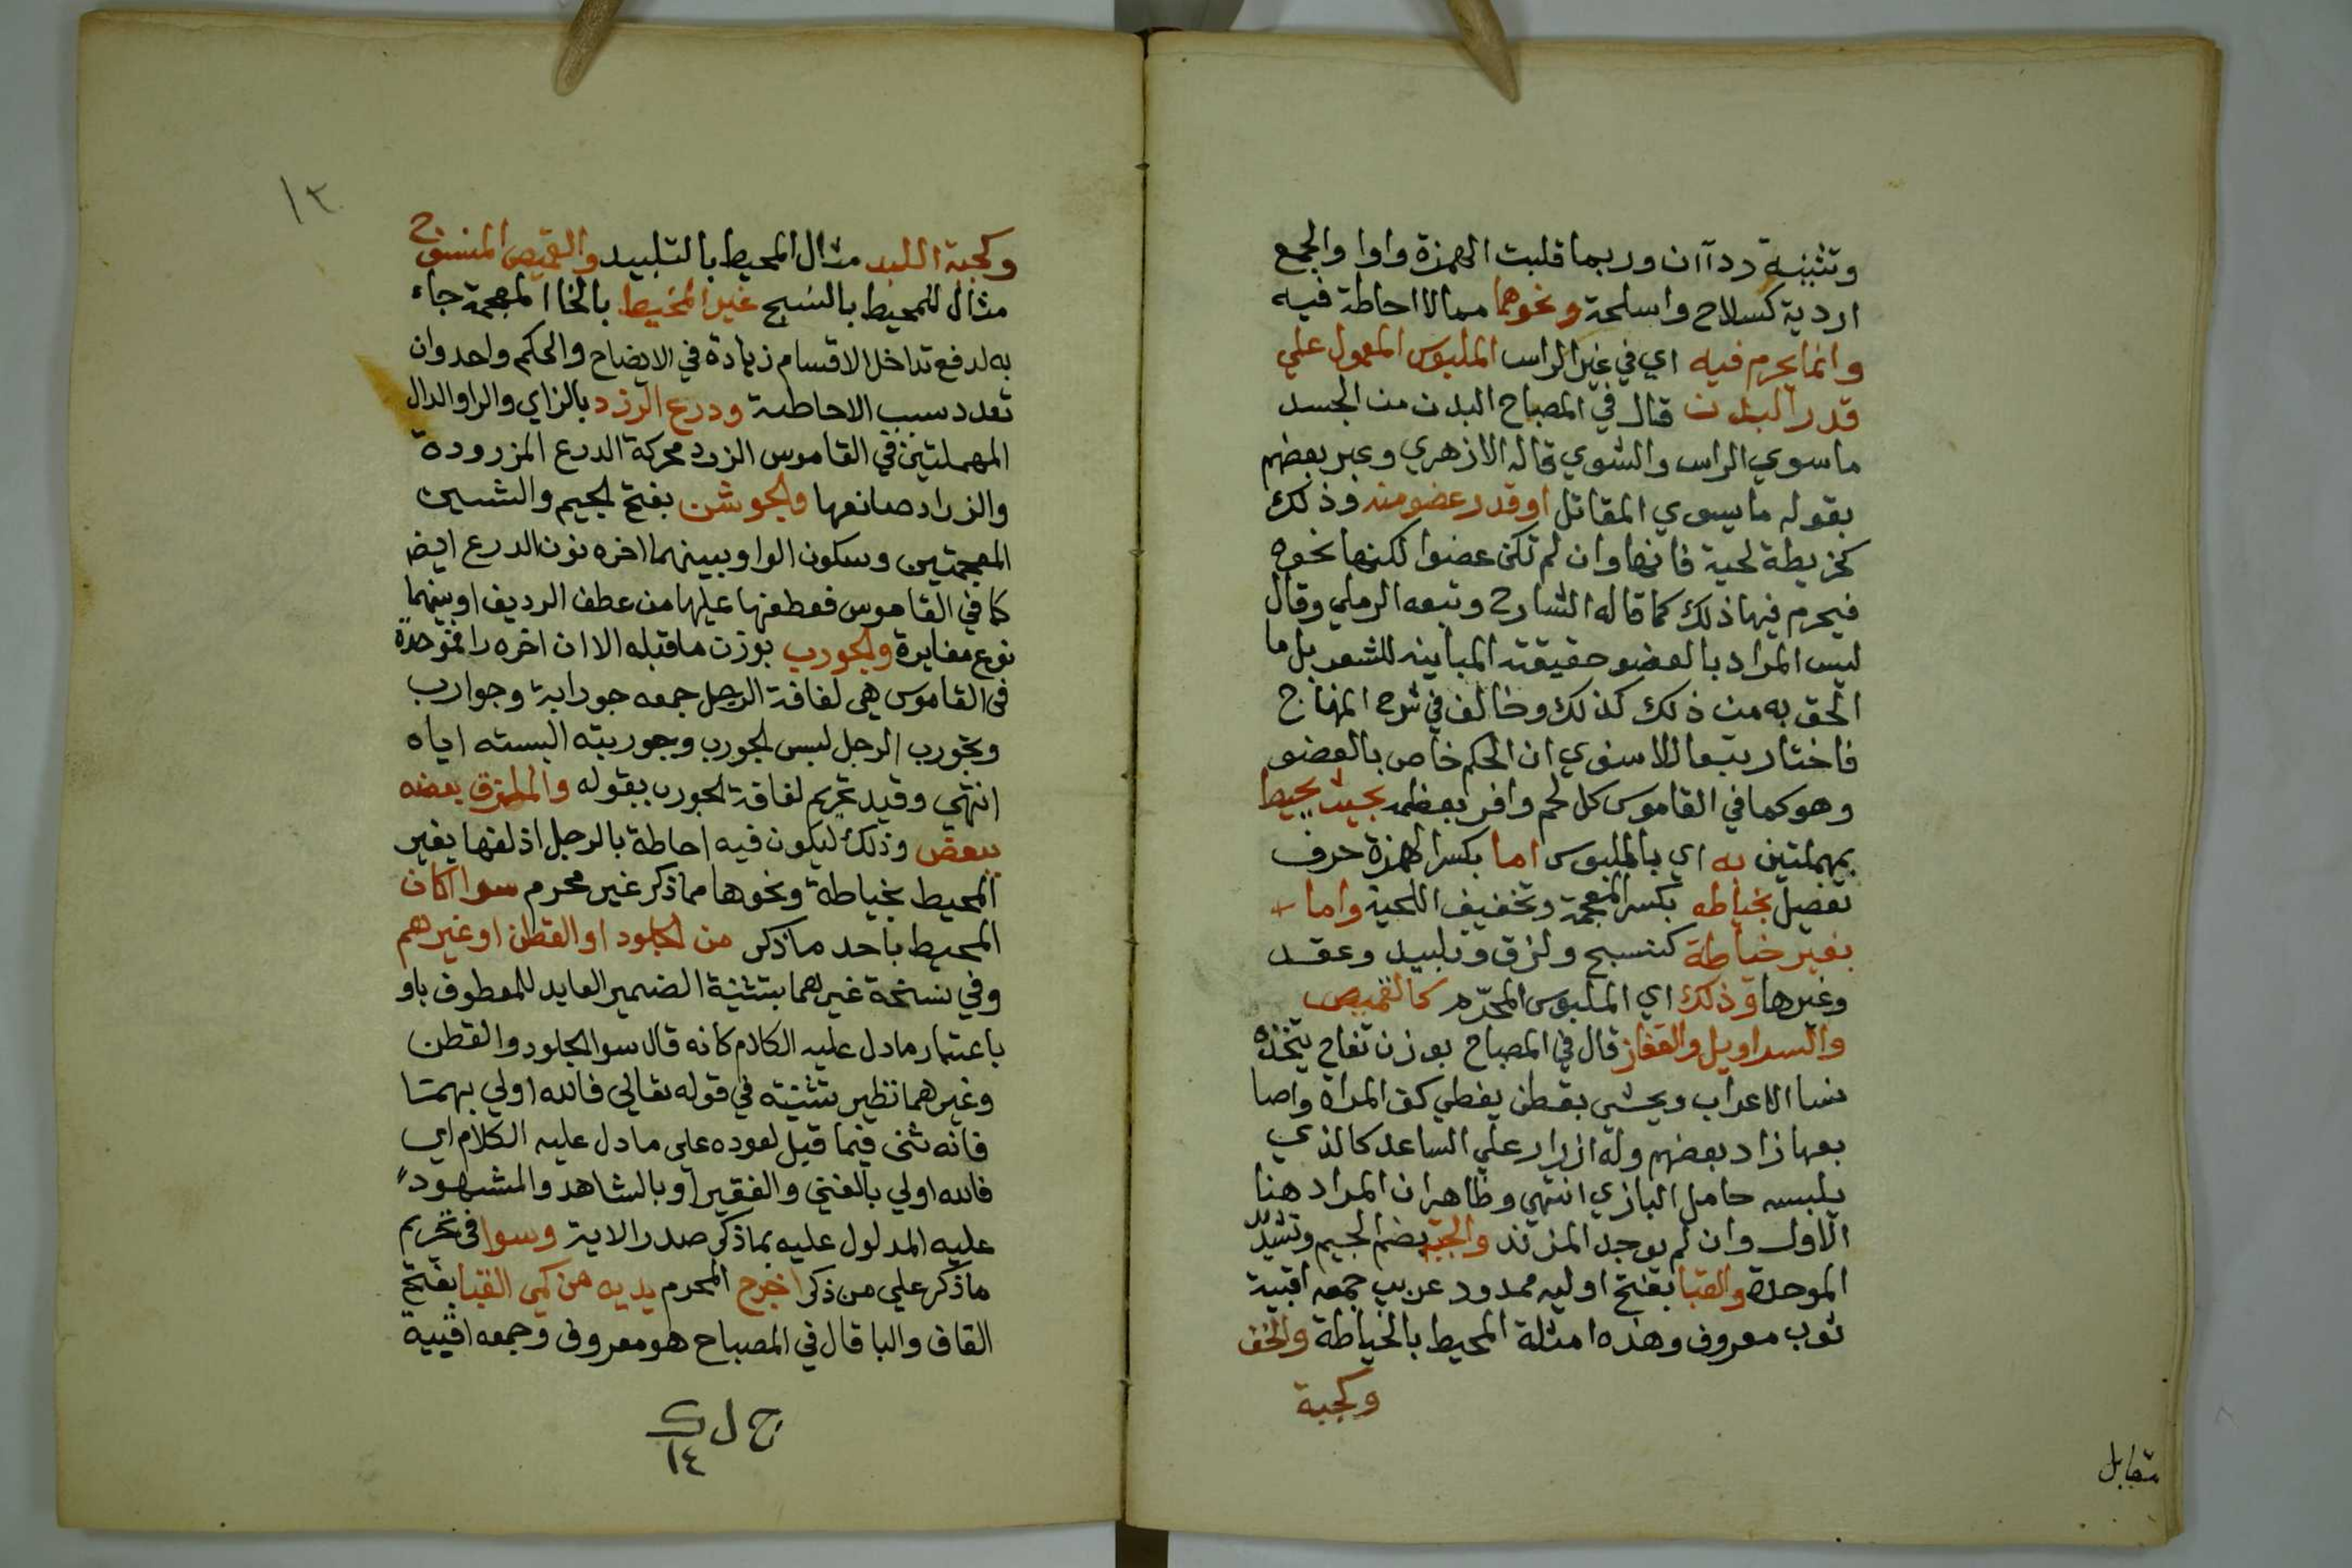 وتثنيته ردآان وربما قلبت الهمزة واوا والجمع
اردية كسلاح واسلحة ونحوهما مما لا احاطة فيه
وانما يحرم فيه اي في غير الراس الملبوس المعمول علي
قدر البدن قال في المصباح البدن من الجسد
ما سوي الراس والشوي قاله الازهري وعبر بعضهم
بقوله ما سوي المقاتل او قدر عضو منه وذلك
كخريطة لحية فانها وان لم تكن عضوا لكنها نحوه
فيحرم فيها ذلك كما قاله الشارح وتبعه الرملي وقال
ليس المراد بالعضو حقيقته المباينه للشعر بل ما
الحق به من ذلك كذلك وخالف في شرح المنهاج
فاختار تبعا للاسنوي ان الحكم خاص بالعضو
وهو كما في القاموس كل لحم وافر بعظمه بحيث يحيط
بمهملتين به اي بالملبوس اما بكسر الهمزة حرف
تفصيل بخياطه بكسر المعجمة وتخفيف اللحية واما
بغير خياطة كنسج ولزق وتلبيد وعقد
وغيرها وذلك اي الملبوس المحرّم كالقميص
والسراويل والقفاز قال في المصباح بوزن تفاح يتخذه
نسا الاعراب ويحشي بقطن يغطي كف المراة واصا
بعها زاد بعضهم وله ازرار علي الساعد كالذي
يلبسه حامل البازي انتهي وظاهر ان المراد هنا
الاول وان لم يوجد المزرّد والجبة بضم الجيم وتشديد
الموحدة والقبا بفتح اوليه ممدود عربي جمعه اقبية
ثوب معروف وهذه امثلة المحيط بالخياطة والخف
وكجبة
متقابل
١٣
وكجبة اللبد مثال المحيط بالتلبيد والقميص المنسوج
مثال للمحيط بالنسج غير المخيط بالخا المعجمة جاء
به لدفع تداخل الاقسام زيادة في الايضاح والحكم واحد وان
تعدد سبب الاحاطة ودرع الزرد بالزاي والرا والدال
المهملتين في القاموس الزرد محركة الدرع المزرودة
والزراد صانعها والجوشن بفتح الجيم والشين
المعجمتين وسكون الواو بينهما اخره نون الدرع ايض
كما في القاموس فعطفها عليها من عطف الرديف او بينهما
نوع مغايرة والجورب بوزن ما قبله الا ان اخره را فموحدة
في القاموس هي لفافة الرجل جمعه جواربة وجوارب
وتجورب الرجل لبس الجورب وجوربته البسته اياه
انتهي وقيد تحريم لفافة الجورب بقوله والملتزق بعضه
ببعض وذلك ليكون فيه احاطة بالرجل اذ لفها بغير
المحيط بخياطة ونحوها مما ذكر غير محرم سوا اكان
المحيط باحد ما ذكر من الجلود او القطن او غيرهم
وفي نسخة غيرهما بتثنية الضمير العايد للمعطوف باو
باعتبار ما دل عليه الكلام كانه قال سوا الجلود والقطن
وغيرهما نظير تثنيته في قوله تعالي فالله اولي بهما
فانه ثنى فيما قيل لعوده على ما دل عليه الكلام اي
فالله اولي بالغني والفقير او بالشاهد والمشهود
عليه المدلول عليه بما ذكر صدر الاية وسوا في تحريم
ما ذكر علي من ذكر اخرج المحرم يديه من كمي القبا بفتح
القاف والبا قال في المصباح هو معروف وجمعه اقبية
ح ل ك
١٤